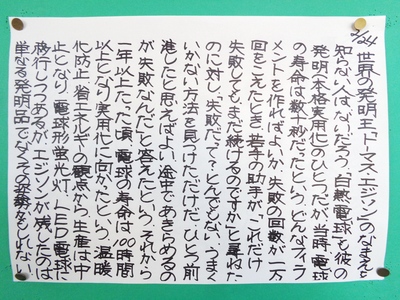 7/24
世界の発明王「トーマス・エジソン」のなまえを
知らない人はないだろう。「白熱電球」も彼の
発明(本格実用化)のひとつだが、当時、電球
の寿命は数十秒だったという。どんなフィラ
メントを作ればよいか、失敗の回数が一万
回をこえたとき、若手の助手が「これだけ
失敗しても、まだ続けるのですか」と尋ねた
のに対し、「失敗だって?とんでもない。うまく
いかない方法を見つけただけだ。ひとつ前
進したと思えばよい。途中であきらめるの
が失敗なんだ」と答えたという。それから
一年以上たった頃、電球の寿命は、100時間
以上となり、実用化に向かったという。温暖
化防止、省エネルギーの観点から、生産は中
止となり、電球形蛍光灯、LED電球に
移行しつつあるが、エジソンが残したのは
単なる発明品でなくその姿勢かもしれない